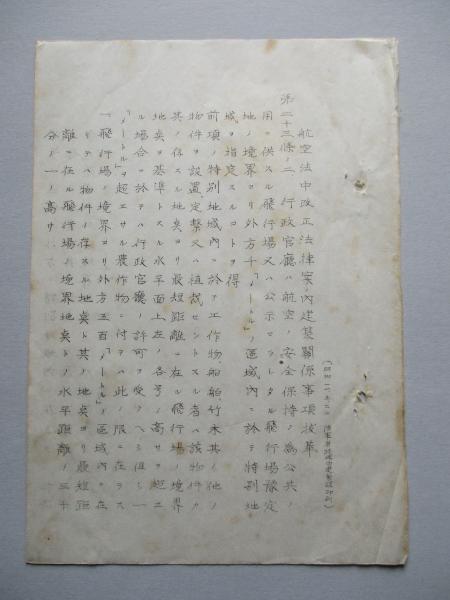 航空法中改正法律案ノ内建築關係事項抜萃
第二十三條ノ二 行政官廳ハ航空ノ安全保持ノ為公共ノ
用ニ供スル飛行場又ハ公示セラレタル飛行場豫定
地ノ境界ヨリ外方千「メートル」ノ區域内ニ於テ特別地
域ヲ指定スルコトヲ得
前項ノ特別地域内ニ於テ工作物、船舶竹木其ノ他ノ
物件ヲ設置定繫又ハ植栽セントスル者ハ該物件カ
其ノ存スル地奌ヨリ最短距離ニ在ル飛行場ノ境界
地奌ヲ基準トスル水平面上左ノ各号ノ高サヲ超ユ
ル場合ニ於テハ行政官廳ノ許可ヲ受クヘシ但シ一
「メートル」ヲ超エサル農作物ニ付テハ此ノ限ニ在ラス
一 飛行場ノ境界ヨリ外方五百「メートル」ノ區域内ニ在
リテハ物件ノ存スル地奌ト其ノ地奌ヨリ最短距
離ニ在ル飛行場ノ境界地奌トノ水平距離ノ三十
分ノ一ノ高サ